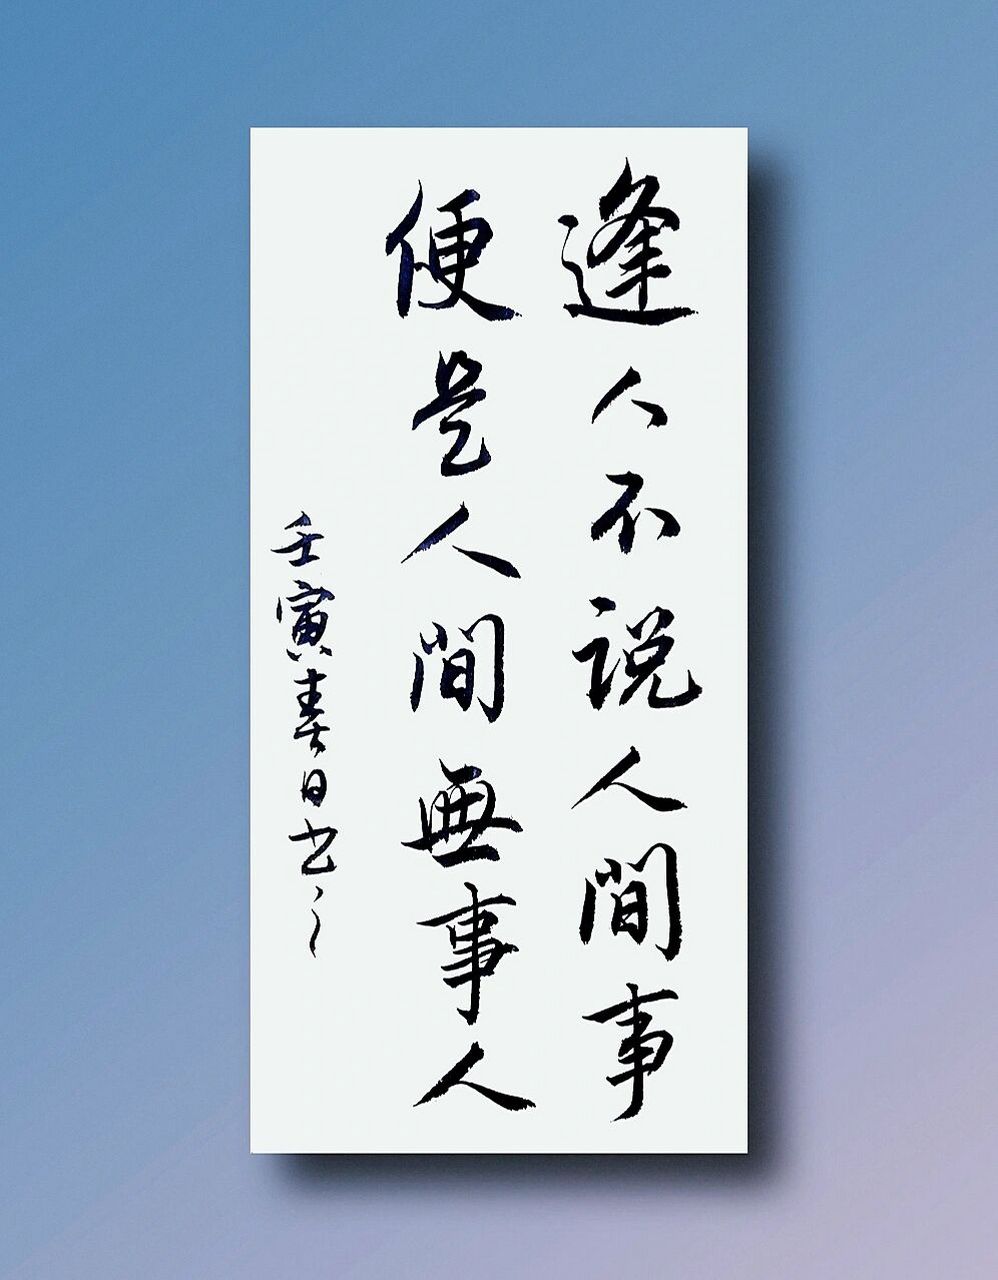 逢人不说人間事
便是人間無事人
壬寅春日书之